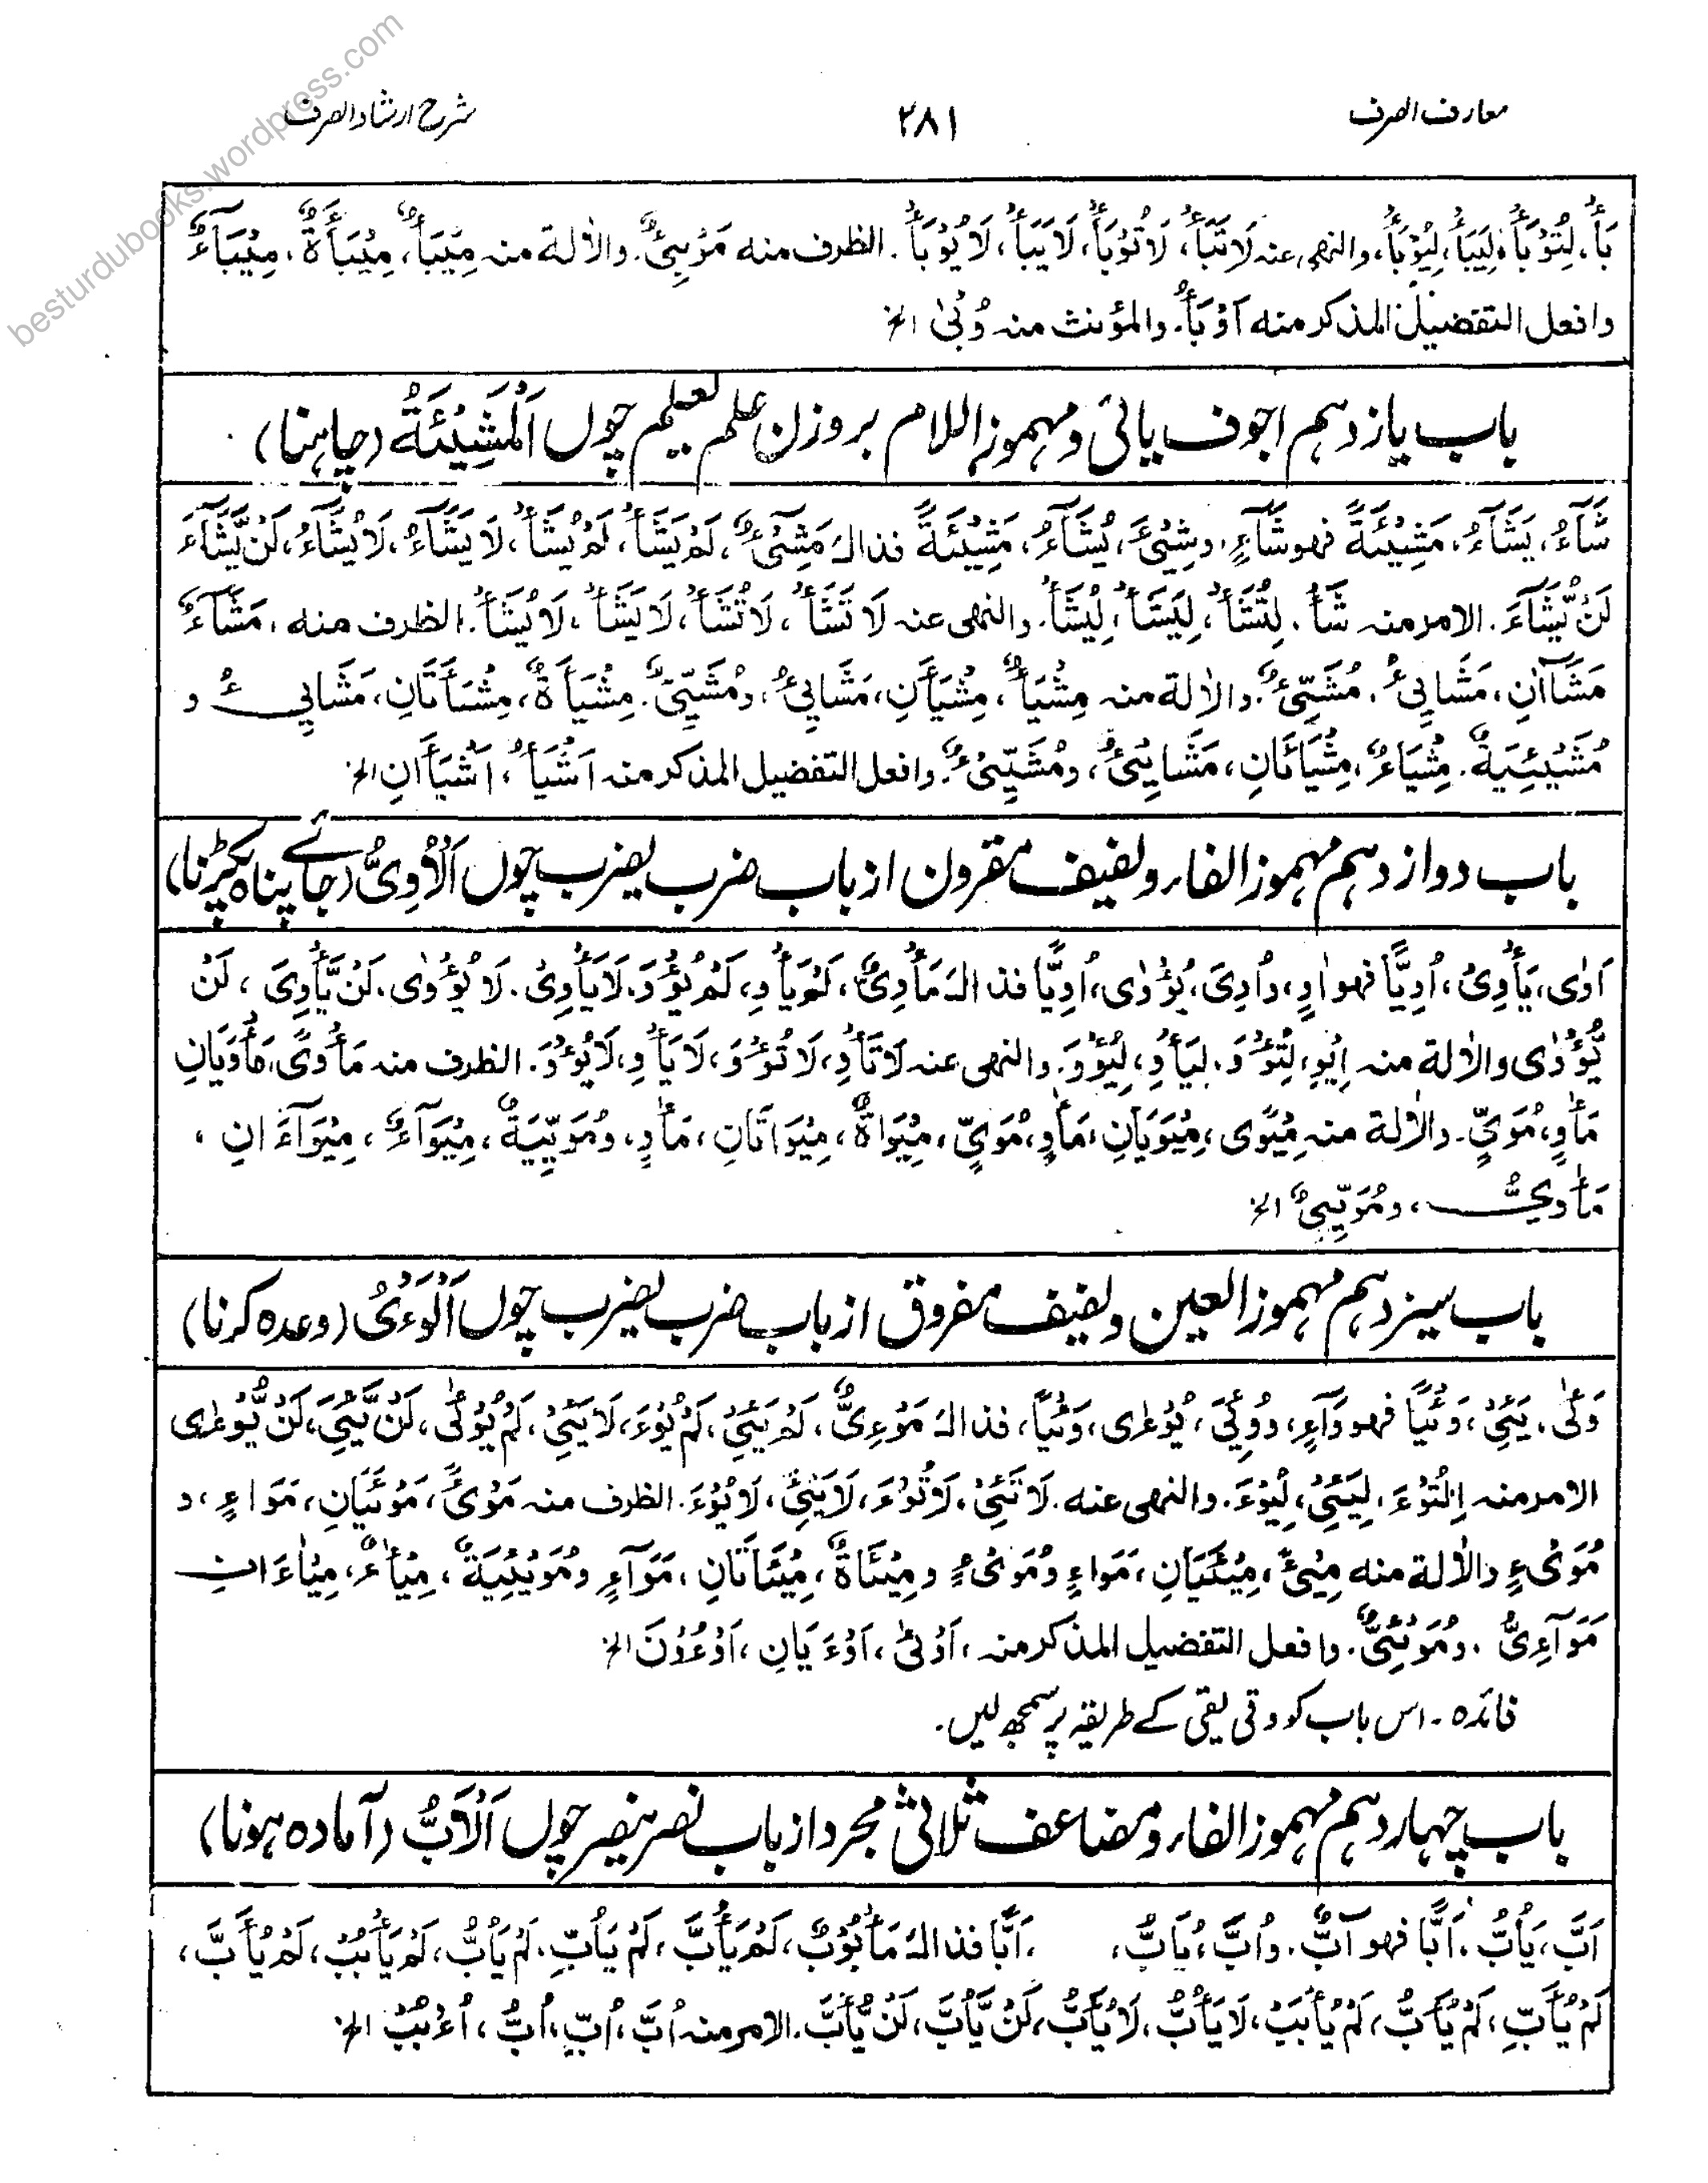 معارف الصرف ۲۸۱ شرح ارشاد الصرف
بَأْ، لِتُوْبَأْ، لِيَبَأْ، لِيُوْبَأْ، والنهى عنه لَا تَبَأْ، لَا تُوْبَأْ، لَا يَبَأْ، لَا يُوْبَأْ. الظرف منه مَوْبِئٌ. والاٰلة منه مِيْبَأٌ، مِيْبَأَةٌ، مِيْبَآءٌ
وافعل التفضيل المذكر منه اَوْبَأُ. والمؤنث منه وُبْئٰ الخ
باب یازدہم اجوف یائی و مہموز اللام بروزن علم یعلم چوں اَلْمَشِيْئَةُ (چاہنا)
شَآءَ، يَشَآءُ، مَشِيْئَةً فهو شَآءٍ، وشِيْئَ، يُشَآءُ، مَشِيْئَةً فذاك مَشِيْئٌ، لَمْ يَشَأْ، لَمْ يُشَأْ، لَا يَشَآءُ، لَا يُشَآءُ، لَنْ يَّشَآءَ
لَنْ يُّشَآءَ. الامر منه شَأْ. لِتُشَأْ، لِيَشَأْ، لِيُشَأْ. والنهى عنه لَا تَشَأْ، لَا تُشَأْ، لَا يَشَأْ، لَا يُشَأْ. الظرف منه، مَشَآءٌ
مَشَآاٰنِ، مَشَايِئُ، مُشَيِّئٌ. والاٰلة منه مِشْيَأٌ، مِشْيَأَنِ، مَشَايِئُ، ومُشَيِّئٌ. مِشْيَأَةٌ، مِشْيَأَتَانِ، مَشَايِئُ و
مُشَيْئِيَةٌ. مِشْيَاءٌ، مِشْيَائَانِ، مَشَايِئُ، ومُشَيِّيْئٌ. وافعل التفضيل المذكر منه اَشْيَأُ، اَشْيَأَانِ الخ
باب دوازدہم مہموز الفاء ولفیف مقرون از باب ضرب یضرب چوں اَلْاُوِيُّ (جائے پناہ پکڑنا)
اَوٰى، يَأْوِىْ، اُوِيًّا فهو اٰوٍ، واُوِىَ، يُؤْوٰى، اُوِيًّا فذاك مَأْوِىٌّ، لَمْ يَأْوِ، لَمْ يُؤْوَ. لَا يَأْوِىْ. لَا يُؤْوٰى. لَنْ يَّأْوِىَ، لَنْ
يُّؤْوٰى والاٰلة منه اِيْوِ، لِتُؤْوَ. لِيَأْوِ، لِيُؤْوَ. والنهى عنه لَا تَأْوِ، لَا تُؤْوَ، لَا يَأْوِ، لَا يُؤْوَ. الظرف منه مَأْوًى، مَأْوَيَانِ
مَأٰوٍ، مُوَىٍّ. والاٰلة منه مِيْوًى، مِيْوَيَانِ، مَأٰوٍ، مُوَىٍّ، مِيْوَاةٌ، مِيْوَاتَانِ، مَأٰوٍ، ومُوَيِّيَةٌ، مِيْوَآءٌ، مِيْوَآءَانِ،
مَأٰوِىُّ، ومُوَيِّىٌّ الخ
باب سیزدہم مہموز العین ولفیف مفروق از باب ضرب یضرب چوں اَلْوَءْىُ (وعدہ کرنا)
وَئٰى، يَئِىْ، وَئْيًا فهو وَآءٍ، ووُئِىَ، يُوْءٰى، وَئْيًا، فذاك مَوْءِىٌّ، لَمْ يَئِ، لَمْ يُوْءَ، لَا يَئِىْ، لَمْ يُوْئٰى، لَنْ يَّئِىَ، لَنْ يُّوْءٰى
الامر منه اِ، لِتُوْءَ، لِيَئِ، لِيُوْءَ. والنهى عنه. لَا تَئِ، لَا تُوْءَ، لَا يَئِ، لَا يُوْءَ. الظرف منه مَوْئً، مَوْئَيَانِ، مَوَاءٍ، و
مُوَىْءٍ والاٰلة منه مِيْئً، مِيْئَيَانِ، مَوَاءٍ ومُوَىْءٍ ومِيْئَاةٌ، مِيْئَاتَانِ، مَوَآءٍ ومُوَيْئِيَةٌ، مِيْاٰءٌ، مِيْاٰءَانِ
مَوَآءِىُّ، ومُوَيْئِىٌّ. وافعل التفضيل المذكر منه، اَوْئٰى، اَوْءَيَانِ، اَوْءَوْنَ الخ
فائدہ ۔ اس باب کو وقی یقی کے طریقہ پر سمجھ لیں۔
باب چہاردہم مہموز الفاء ومضاعف ثلاثی مجرد از باب نصر ینصر چوں اَلْاَبُّ (آمادہ ہونا)
اَبَّ، يَأُبُّ، اَبًّا فهو آبٌّ. واُبَّ، يُأَبُّ، ، اَبًّا فذاك مَأْبُوْبٌ، لَمْ يَأُبَّ، لَمْ يَأُبِّ. لَمْ يَأُبُّ، لَمْ يَأْبُبْ، لَمْ يُأَبَّ،
لَمْ يُأَبِّ، لَمْ يُأَبُّ، لَمْ يُأْبَبْ، لَا يَأُبُّ، لَا يُأَبُّ، لَنْ يَّأُبَّ، لَنْ يُّأَبَّ. الامر منه اُبَّ، اُبِّ، اُبُّ، اُءْبُبْ الخ
besturdubooks.wordpress.com